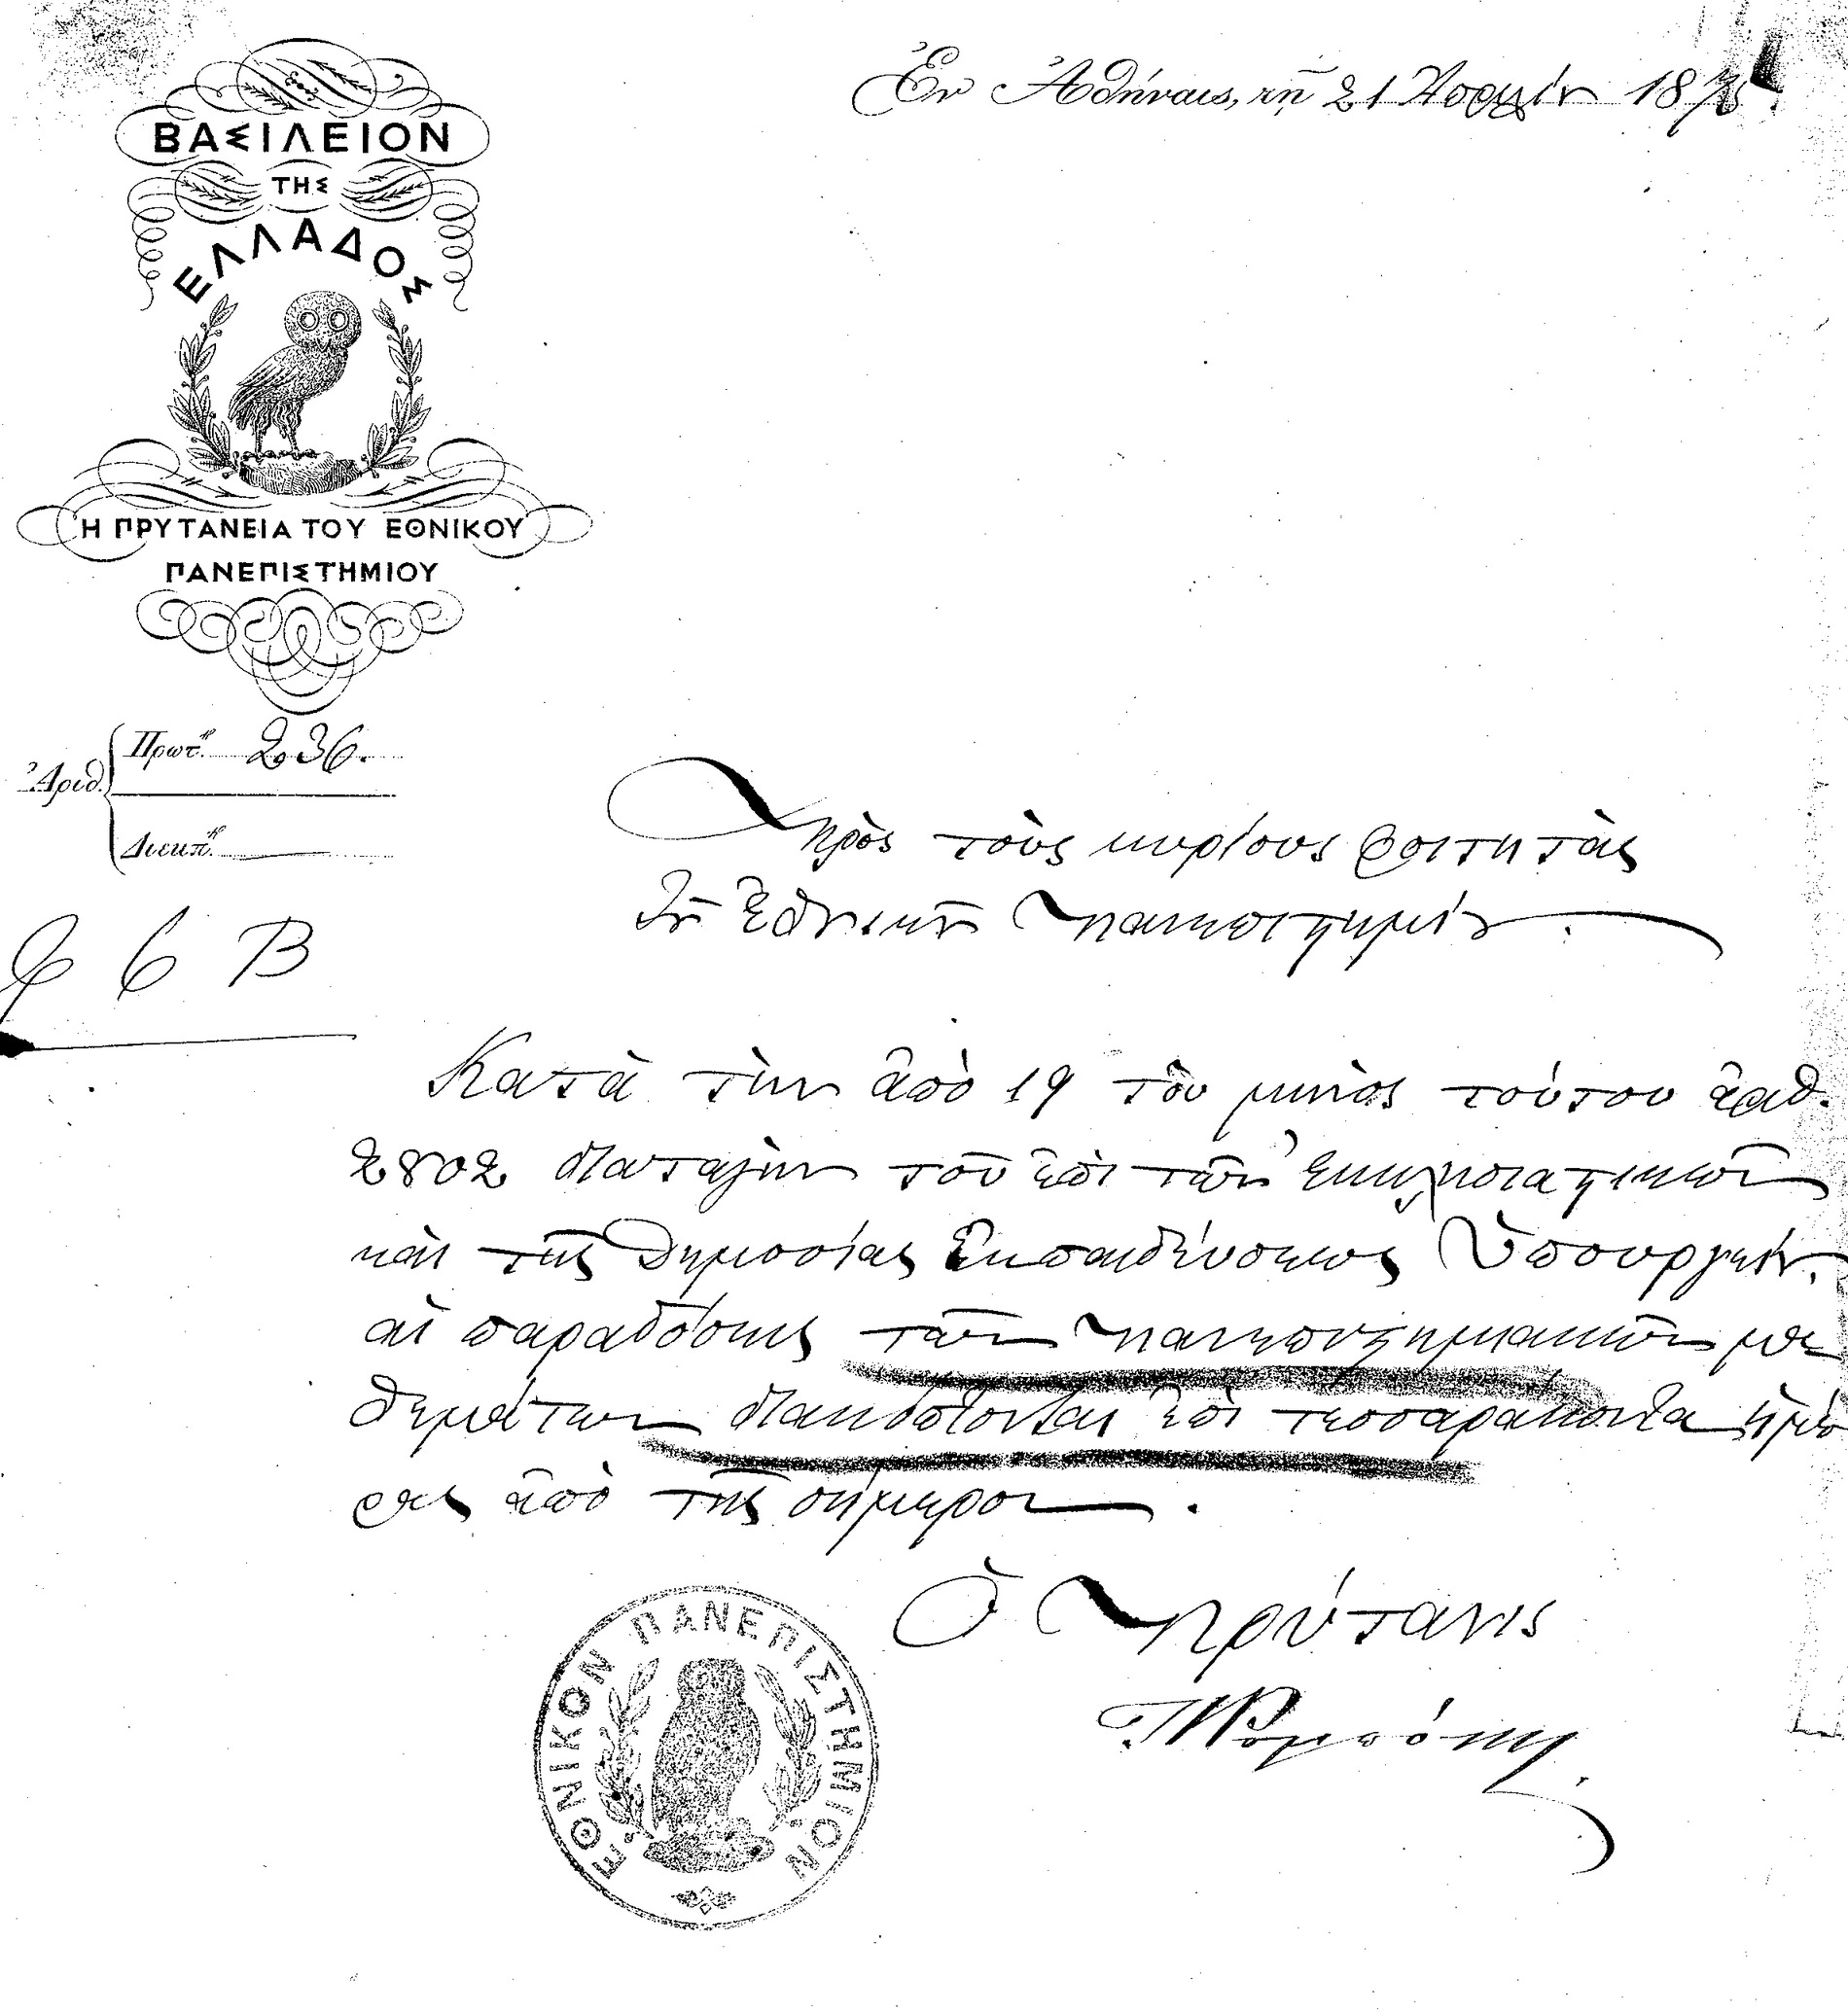 ΒΑΣΙΛΕΙΟΝ
ΤΗΣ
ΕΛΛΑΔΟΣ
Η ΠΡΥΤΑΝΕΙΑ ΤΟΥ ΕΘΝΙΚΟΥ
ΠΑΝΕΠΙΣΤΗΜΙΟΥ
Ἐν Ἀθήναις, τῇ 21 Ἀπριλίου 187
Ἀριθ.
Πρωτ. 236.
Διεκπ.
Πρὸς τοὺς κυρίους φοιτητὰς
τοῦ Ἐθνικοῦ Πανεπιστημίου.
Κατὰ τὴν ἀπὸ 19 τοῦ μηνὸς τούτου ἀριθ.
2802 διαταγὴν τοῦ ἐπὶ τῶν Ἐκκλησιαστικῶν
καὶ τῆς Δημοσίας Ἐκπαιδεύσεως Ὑπουργείου.
αἱ παραδόσεις τῶν Πανεπιστημιακῶν μα
θημάτων διακόπτονται ἐπὶ τεσσαράκοντα ἡμέ
ρας ἀπὸ τῆς σήμερον.
Ὁ Πρύτανις
ΕΘΝΙΚΟΝ ΠΑΝΕΠΙΣΤΗΜΙΟΝ